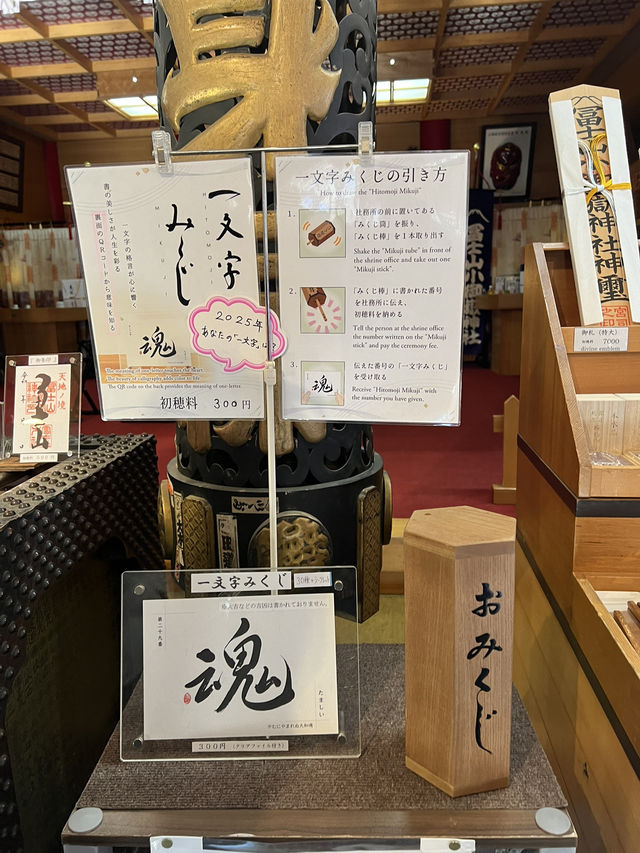 一文字
みくじ
HITOMOJI
MIKUJI
書の美しさが人生を彩る
一文字の格言が心に響く
裏面のQRコードから意味を知る
魂
2025年
あなたの"一文字"は?
The one-letter motto touches the heart.
The beauty of calligraphy adds color to life.
The QR code on the back provides the meaning of one-letter.
初穂料 300円
一文字みくじの引き方
How to draw the "Hitomoji Mikuji"
1.
社務所の前に置いてある
「みくじ筒」を振り、
「みくじ棒」を1本取り出す
Shake the "Mikuji tube" in front of
the shrine office and take out one
"Mikuji stick".
2.
「みくじ棒」に書かれた番号
を社務所に伝え、
初穂料を納める
Tell the person at the shrine office
the number written on the "Mikuji
stick" and pay the ceremony fee.
3.
魂
伝えた番号の「一文字みくじ」
を受け取る
Receive "Hitomoji Mikuji" with
the number you have given.
冨士小御嶽神社神璽
御札(特大)
初穂料 7000
divine emblem
天地の境
一文字みくじ
第二十九番
魂
たましい
300円 (クリアファイル付き)
おみくじ